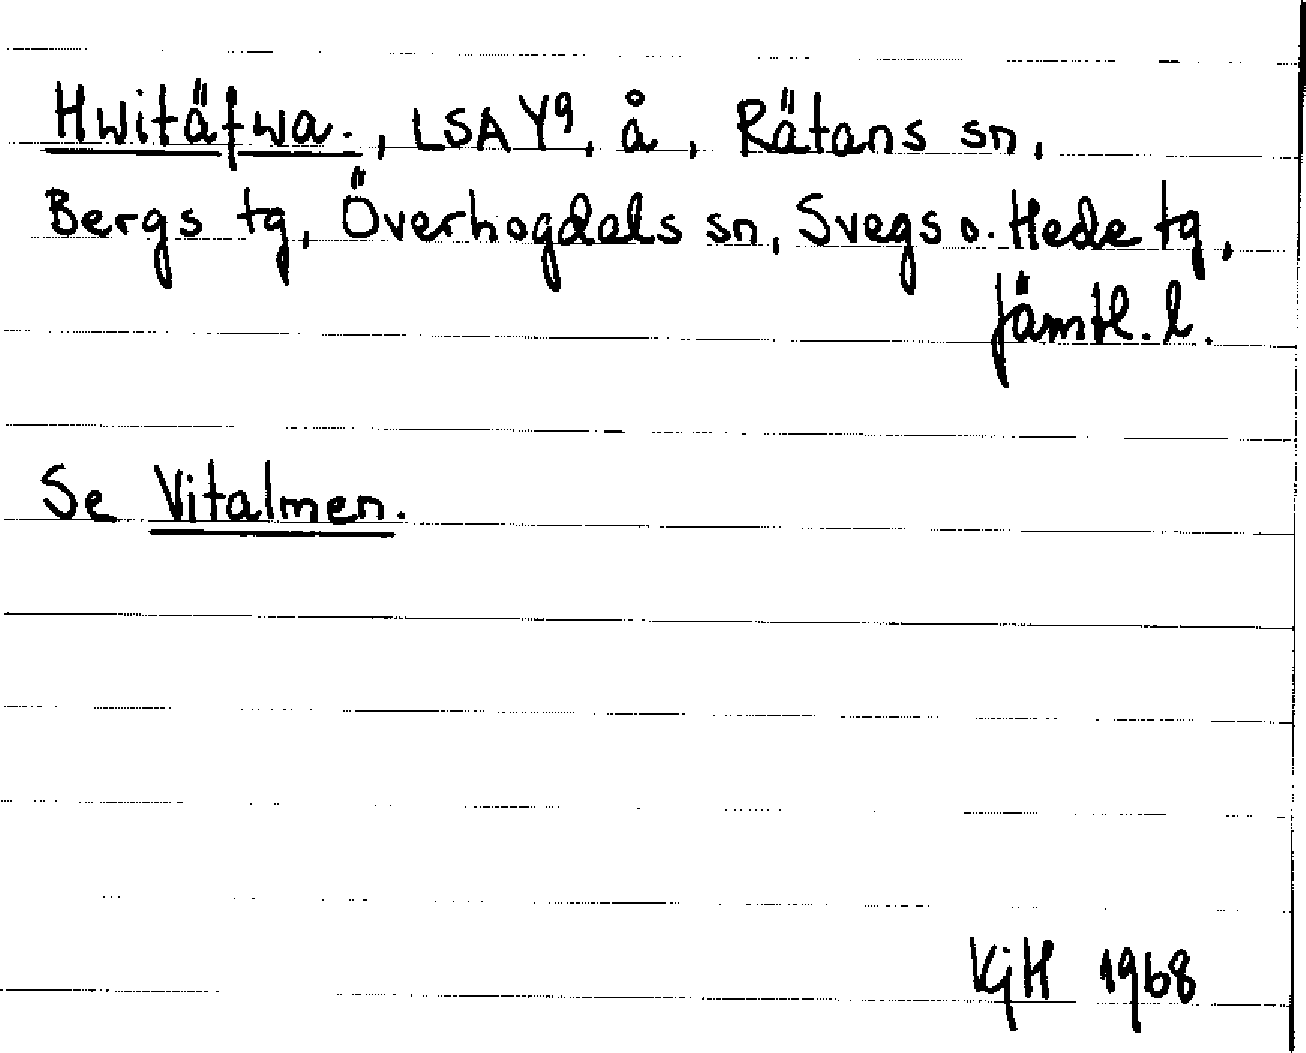 Hwitäfwa., LSA Y9, å, Rätans sn,
Bergs tg, Överhogdals sn, Svegs o. Hede tg,
Jämtl. l.
Se Vitalmen.
KjH 1968